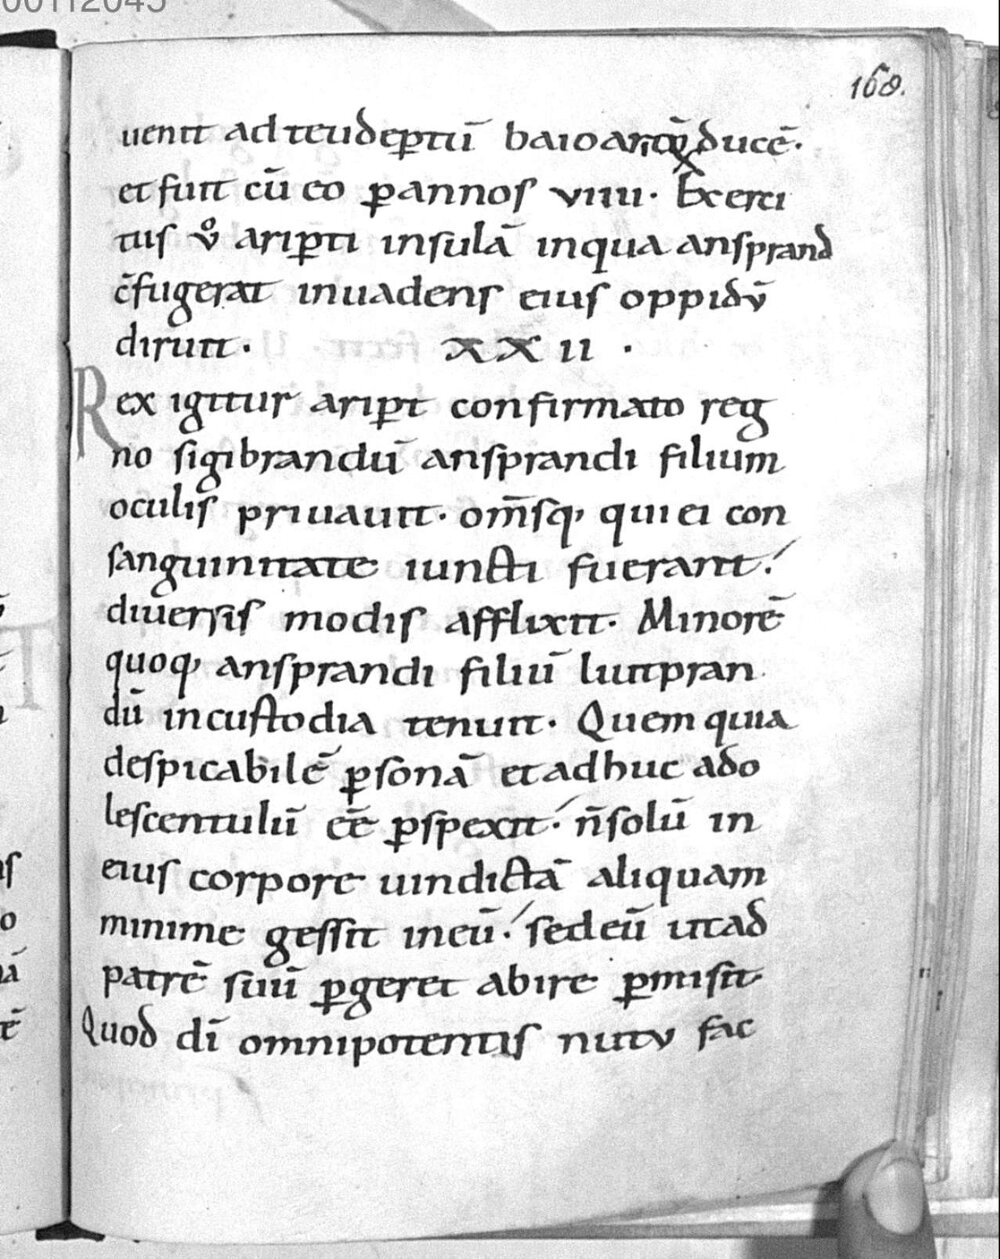 00112045
168.
uenit ad teudeptū baioarioꝝ ducē.
et fuit cū eo p annos viiii. Exerci
tus v̊ aripti insulā in qua ansprand
c̄fugerat inuadens eius oppidū
diruit. XXII.
Rex igitur aript confirmato reg
no sigibrandū ansprandi filium
oculis priuauit. om̄sq, qui ei con
sanguinitate iuncti fuerant.
diuersis modis afflixit. Minorē
quoq, ansprandi filiū liutpran
dū in custodia tenuit. Quem quia
despicabilē ꝑsonā et adhuc ado
lescentulū eē̄ ꝑspexit. n̄ solū in
eius corpore uindictā aliquam
minime gessit in eū. sed eū ut ad
patrē suū ꝑgeret abire ꝑmisit
Quod dī omnipotentis nutu fac